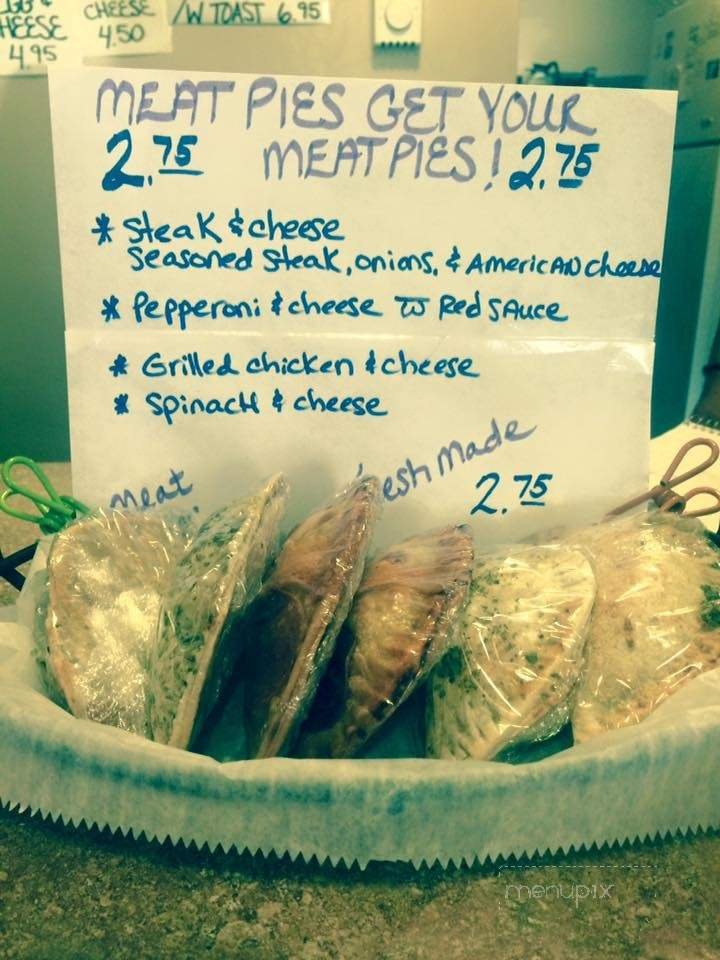 CHEESE
4.95
CHEESE
4.50
/W TOAST 6.95
MEAT PIES GET YOUR
2.75 MEAT PIES! 2.75
* Steak & cheese
Seasoned Steak, onions, & American cheese
* Pepperoni & cheese w Red SAuce
* Grilled chicken & cheese
* Spinach & cheese
Fresh Made
meat
2.75
menupix